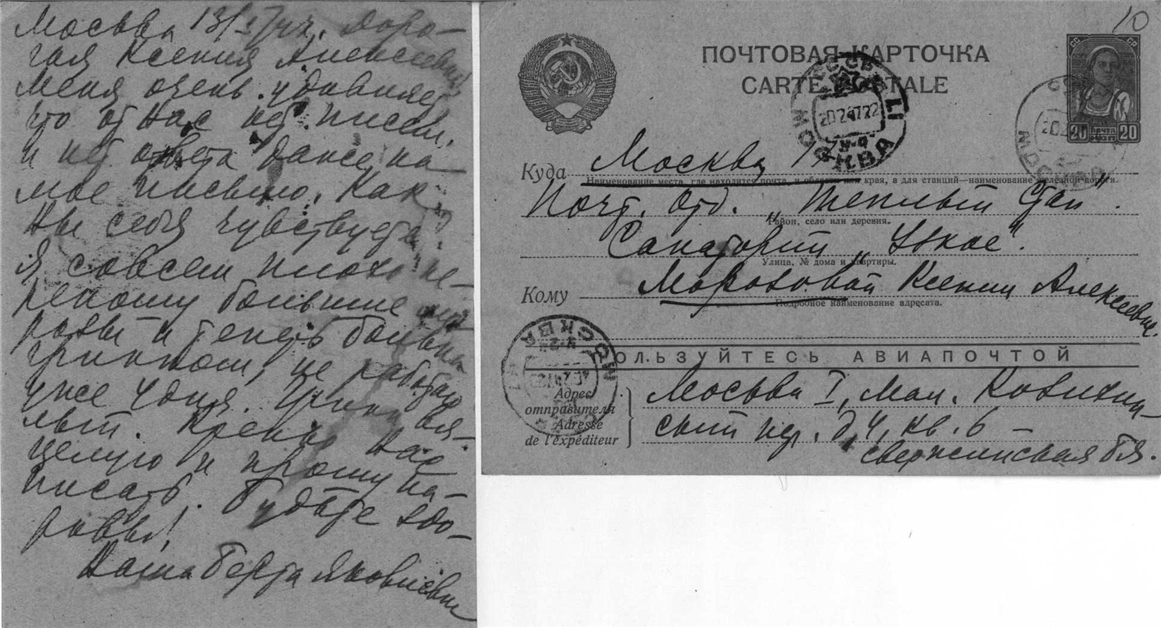 Москва 13/ Доро-
гая Ксения Алексеевна
меня очень удивляет
что от Вас нет писем,
и нет ответа даже на
мое письмо. Как
Вы себя чувствуете?
Я совсем плохо пе-
реношу большие
и теперь больна
гриппом, не работаю
уже 4 дня.
Крепко Вас
целую и прошу на-
писать. Будьте здо-
ровы!
Ваша Берта Яковлевна
10
ПОЧТОВАЯ КАРТОЧКА
CARTE POSTALE
20 20
МОСКВА
Куда Москва
Наименование места, где находится почта, и области или края, а для станций—наименование железной дороги.
Почт. отд. „Теплый Стан".
Район, село или деревня.
Санаторий „Узкое".
Улица, № дома и квартиры.
Кому Морозовой Ксении Алексеевне.
Подробное наименование адресата.
ПОЛЬЗУЙТЕСЬ АВИАПОЧТОЙ
МОСКВА
Адрес
отправителя
Adresse
de l'expéditeur
Москва I, Мал. Козихин-
ский пер. д. 4, кв. 6 –
Б.Я.